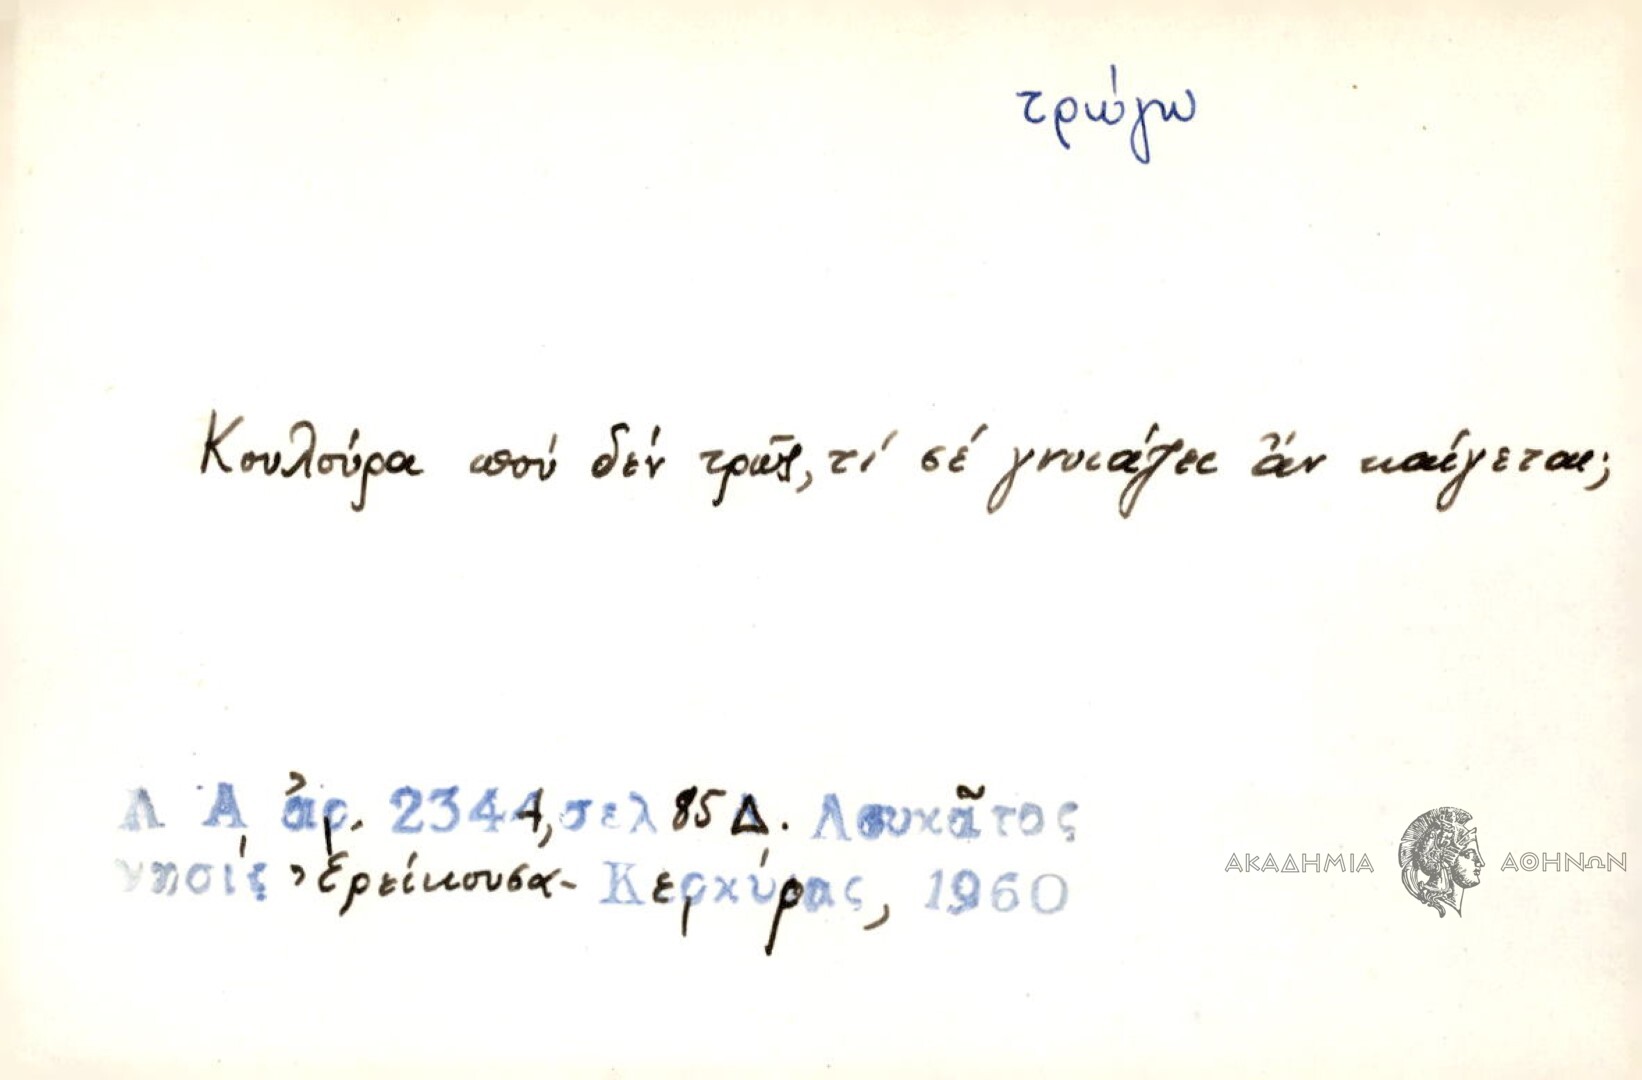 τρώγω
Κουλούρα πού δέν τρῶς, τί σέ γνοιάζει ἄν καίγεται;
Λ Α ἀρ. 2344, σελ 85 Δ. Λουκᾶτος
νησίς Ἐρείκουσα - Κερκύρας, 1960
ΑΚΑΔΗΜΙΑ ΑΘΗΝΩΝ